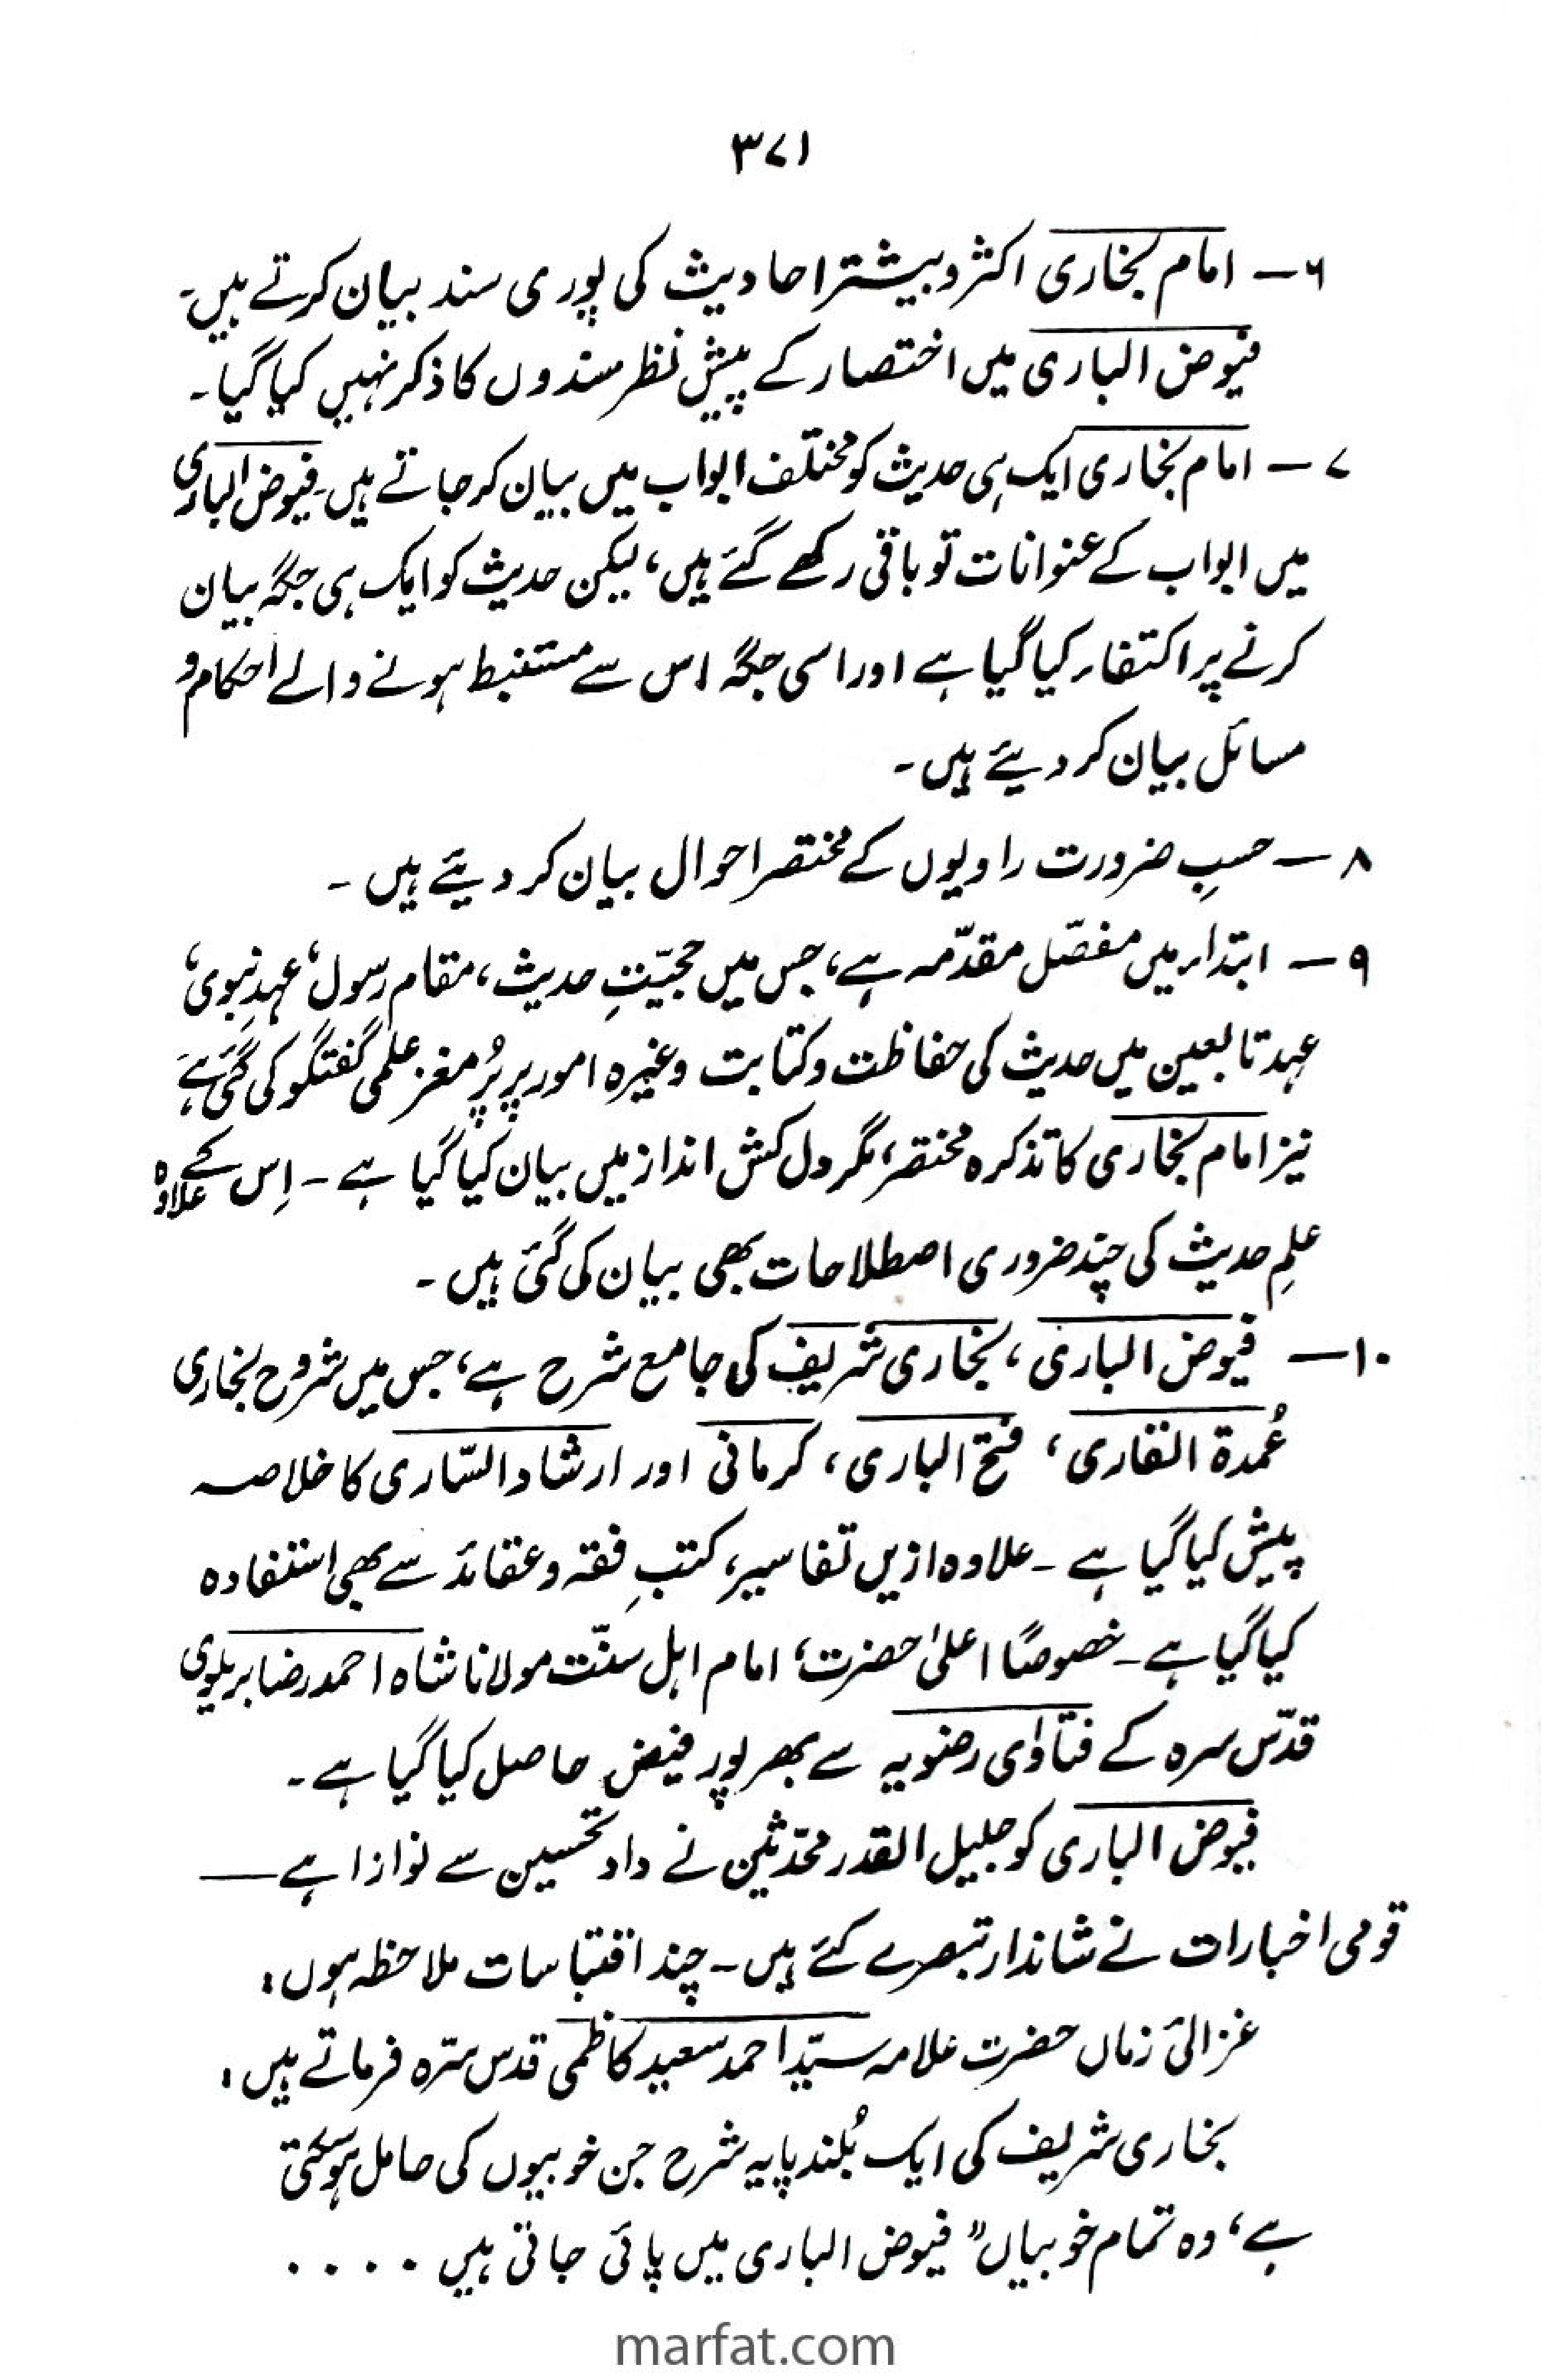 ۳۷۱
۶ـ امام بخاری اکثر و بیشتر احادیث کی پوری سند بیان کرتے ہیں۔
فیوض الباری میں اختصار کے پیشِ نظر سندوں کا ذکر نہیں کیا گیا۔
۷ـ امام بخاری ایک ہی حدیث کو مختلف ابواب میں بیان کر جاتے ہیں۔ فیوض الباری
میں ابواب کے عنوانات تو باقی رکھے گئے ہیں، لیکن حدیث کو ایک ہی جگہ بیان
کرنے پر اکتفاء کیا گیا ہے اور اسی جگہ اس سے مستنبط ہونے والے احکام و
مسائل بیان کر دیئے ہیں۔
۸ـ حسبِ ضرورت راویوں کے مختصر احوال بیان کر دیئے ہیں۔
۹ـ ابتداء میں مفصّل مقدّمہ ہے، جس میں حجیّتِ حدیث، مقامِ رسول، عہدِ نبوی،
عہد تابعین میں حدیث کی حفاظت و کتابت وغیرہ امور پر پُر مغز علمی گفتگو کی گئی ہے
نیز امام بخاری کا تذکرہ مختصر، مگر دل کش انداز میں بیان کیا گیا ہے۔ اِس کے علاوہ
علمِ حدیث کی چند ضروری اصطلاحات بھی بیان کی گئی ہیں۔
۱۰ـ فیوض الباری، بخاری شریف کی جامع شرح ہے، جس میں شروح بخاری
عُمدۃ القاری، فتح الباری، کرمانی اور ارشاد السّاری کا خلاصہ
پیش کیا گیا ہے۔ علاوہ ازیں تفاسیر، کتبِ فقہ و عقائد سے بھی استفادہ
کیا گیا ہے۔ خصوصًا اعلیٰ حضرت، امام اہل سنّت مولانا شاہ احمد رضا بریلوی
قدّس سرہ کے فتاوٰی رضویہ سے بھرپور فیض حاصل کیا گیا ہے۔
فیوض الباری کو جلیل القدر محدّثین نے دادِ تحسین سے نوازا ہے ـــ
قومی اخبارات نے شاندار تبصرے کئے ہیں۔ چند اقتباسات ملاحظہ ہوں:
غزالئ زماں حضرت علامہ سیّد احمد سعید کاظمی قدس سّرہ فرماتے ہیں:
بخاری شریف کی ایک بُلند پایہ شرح جن خوبیوں کی حامل ہو سکتی
ہے، وہ تمام خوبیاں" فیوض الباری میں پائی جاتی ہیں ....
marfat.com